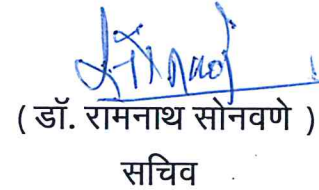 ( डॉ. रामनाथ सोनवणे )
सचिव